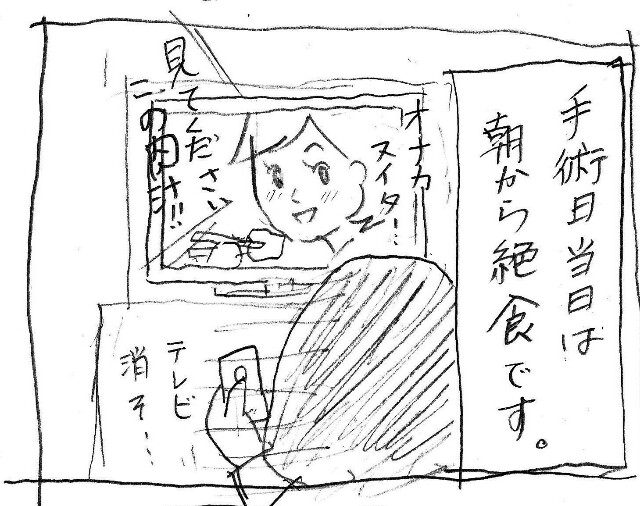 手術日当日は
朝から絶食です。
オナカ
スイタ…
見てください
この肉汁!!
テレビ
消そ…